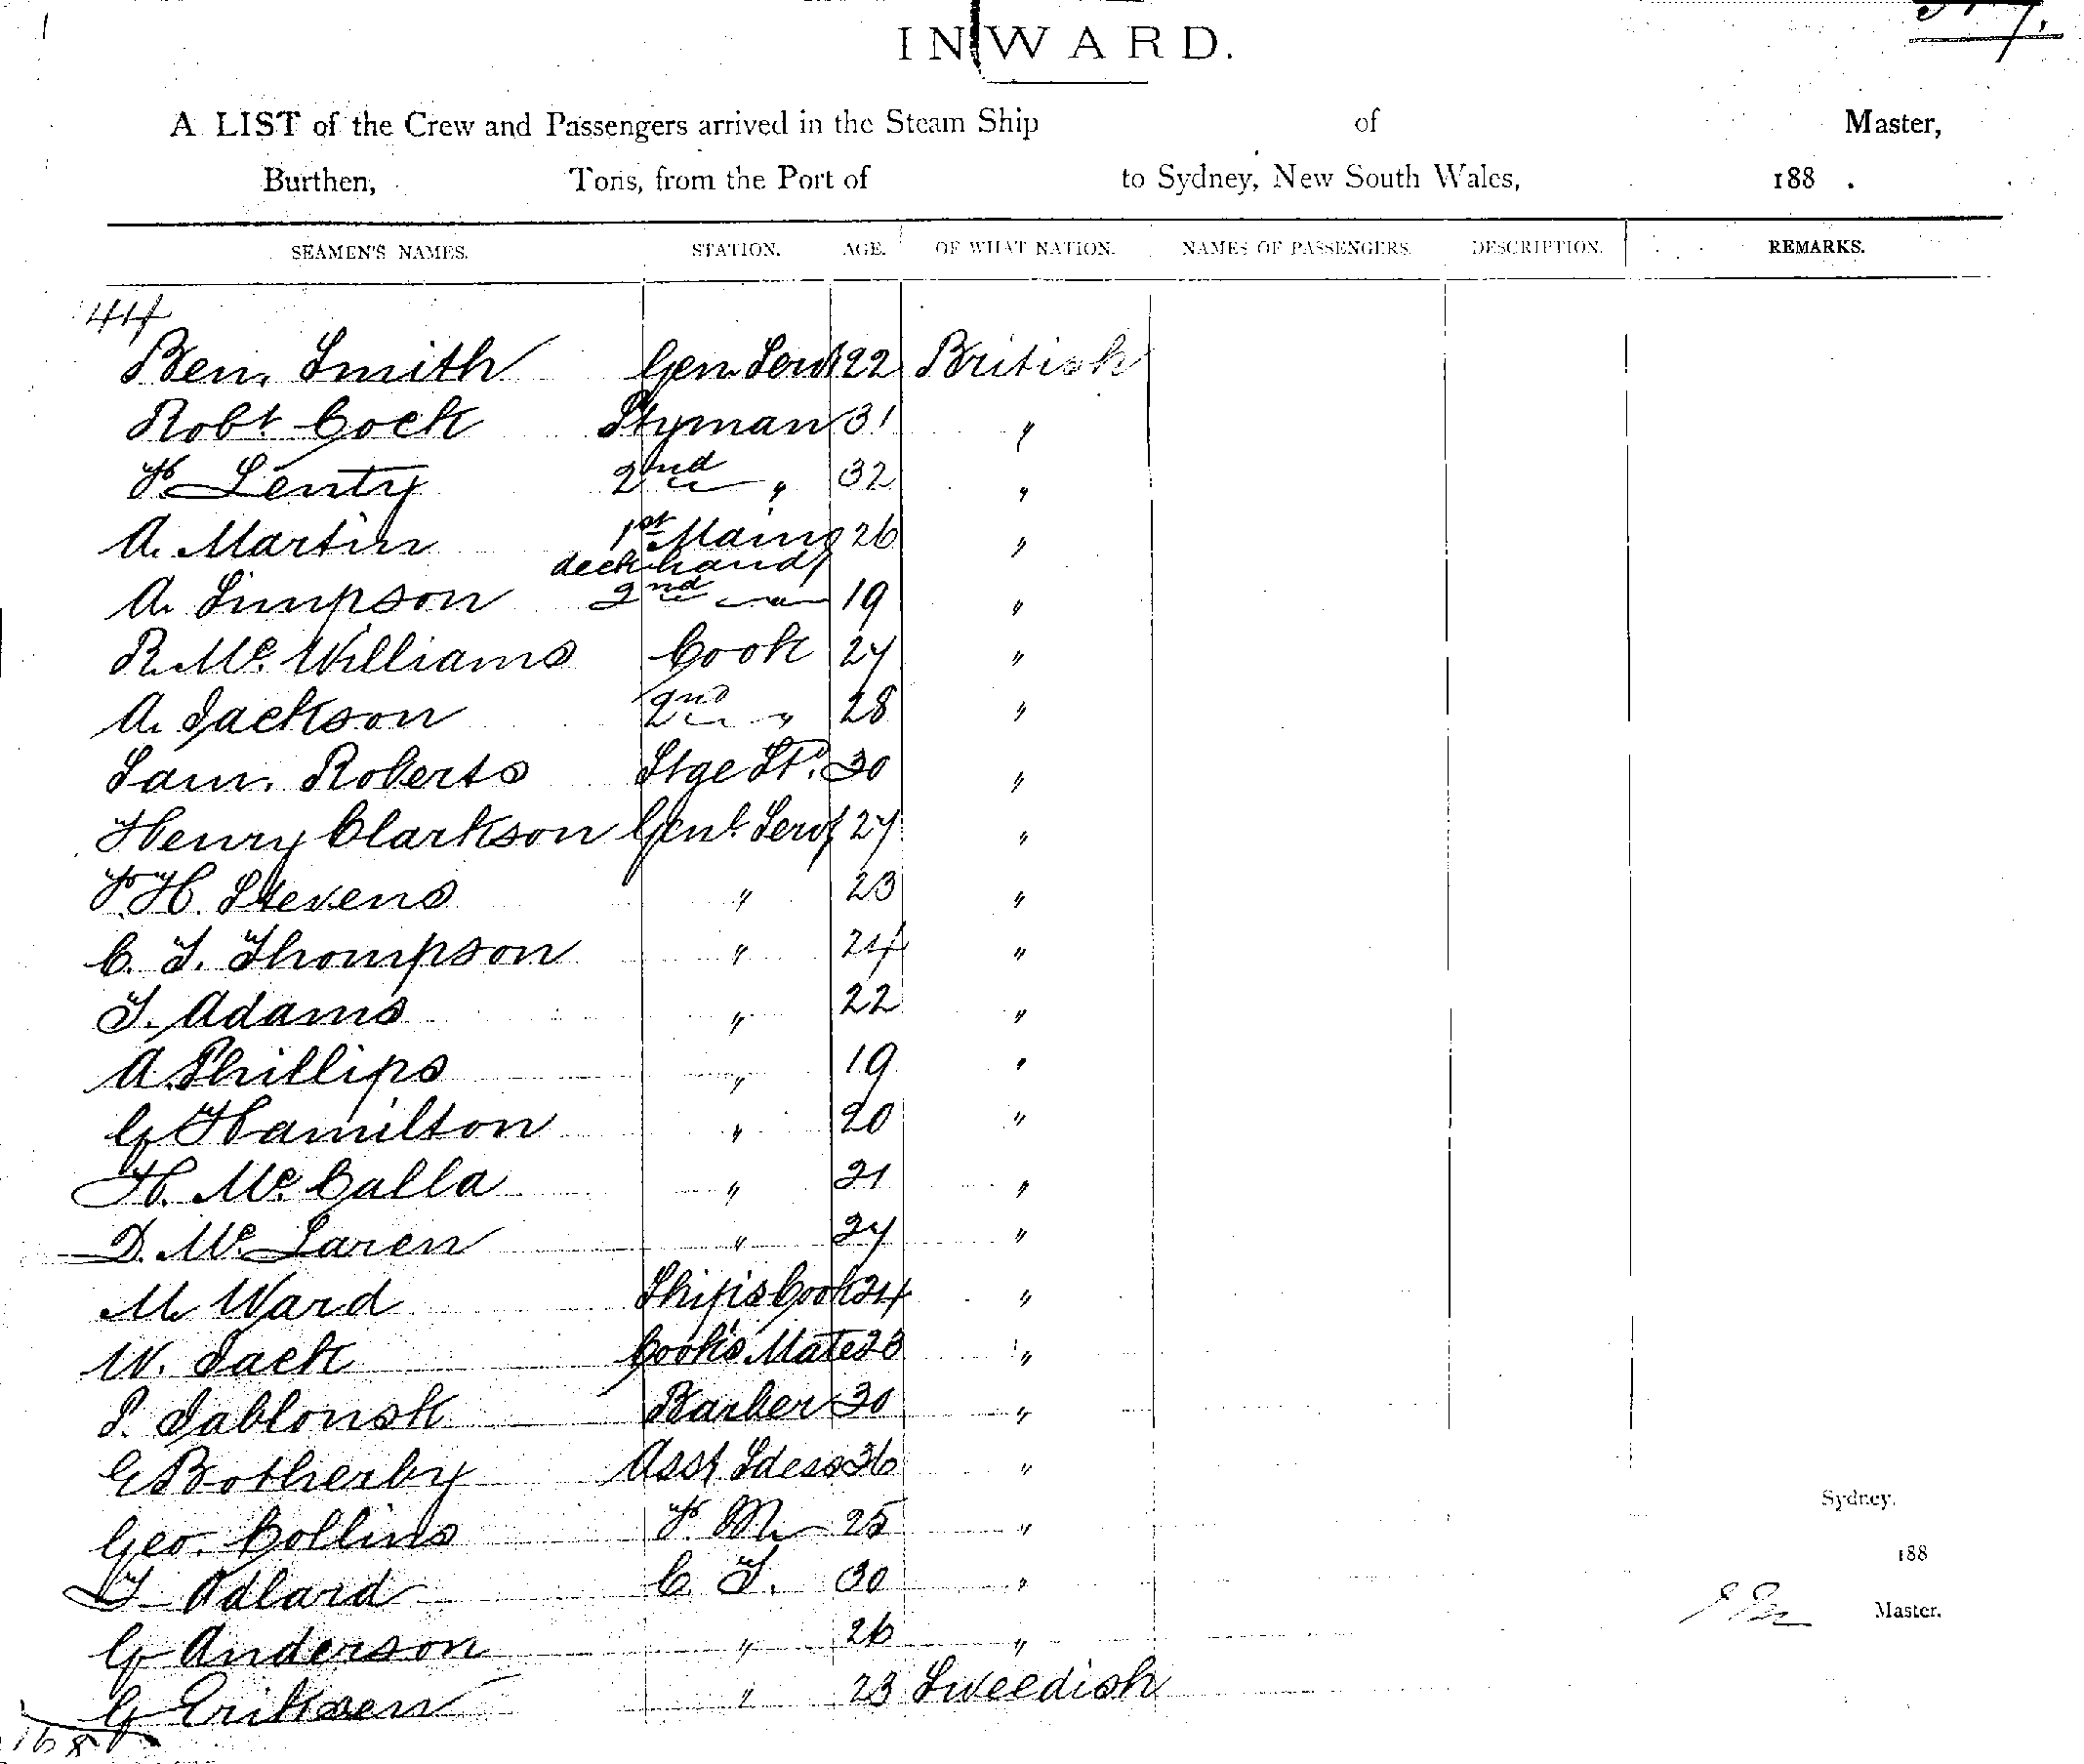 INWARD.
A LIST of the Crew and Passengers arrived in the Steam Ship of Master,
Burthen, Tons, from the Port of to Sydney, New South Wales, 188 .
SEAMEN'S NAMES. STATION. AGE. OF WHAT NATION. NAMES OF PASSENGERS. DESCRIPTION. REMARKS.
44
Ben. Smith Gen. Servt 22 British
Robt Cock Ptyman 31 "
F. Lenty 2nd " 32 "
A. Martin 1st Maing 26 "
deck hand
A. Simpson 2nd " 19 "
R. Mc. Williams Cook 27 "
A. Jackson 2nd " 28 "
Sam. Roberts Stge St. 30 "
Henry Clarkson Genl. Servt 27 "
F. H. Stevens " 23 "
C. T. Thompson " 24 "
T. Adams " 22 "
A. Phillips " 19 "
G Hamilton " 20 "
H. Mc. Calla " 21 "
D. Mc. Laren " 27 "
M. Ward Ship's Cook 24 "
W. Jack Cook's Mate 23 "
P. Jablonsk Barber 30 "
E Botherby Asst Sdess 36 "
Geo. Collins F. M 25 "
T Adlard C. T. 30 "
G Anderson " 26 "
G Eriksen " 23 Sweedish
Sydney.
188
Master.
168